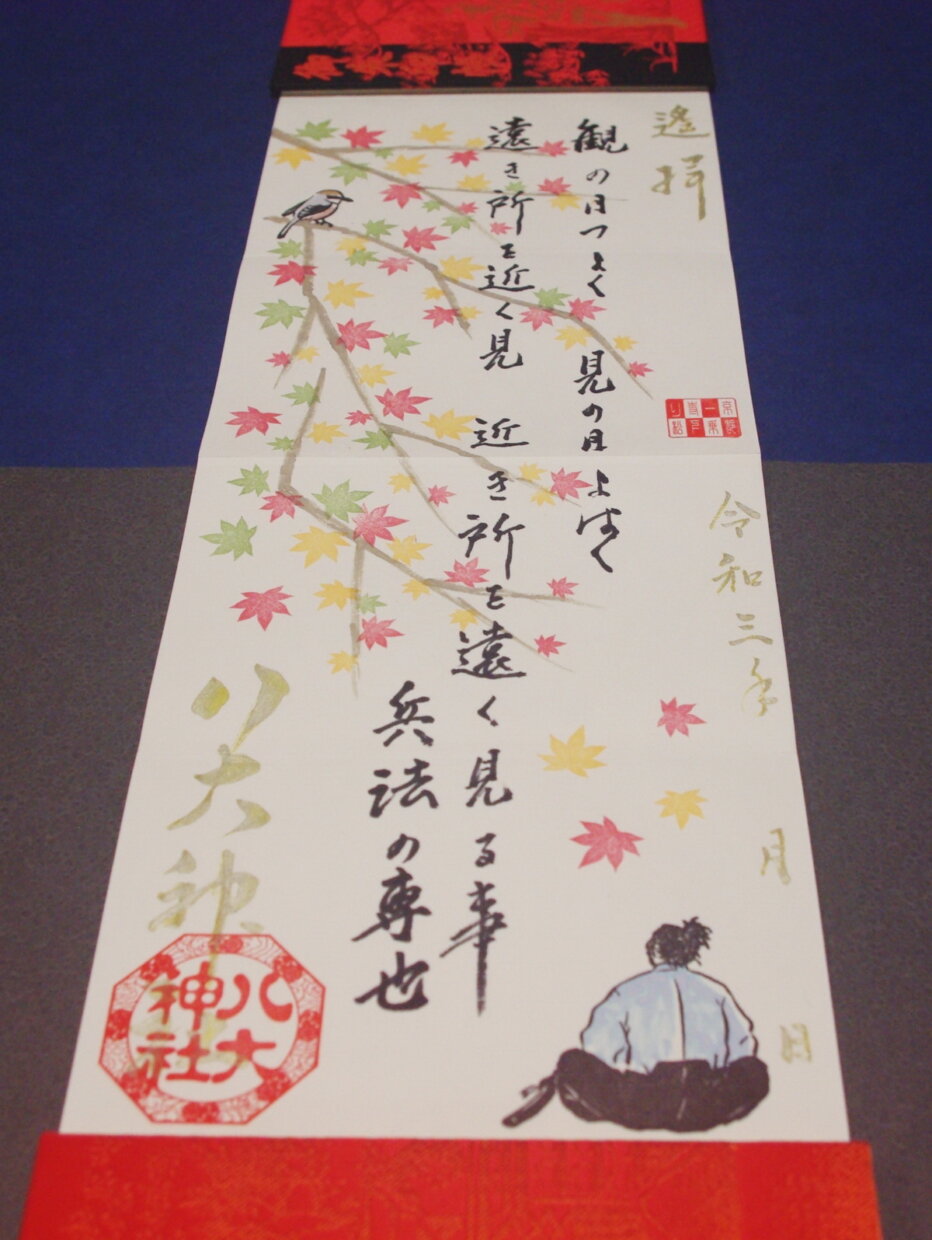 遙拝
一乗寺下り松
令和三年 月 日
観の目つよく 見の目よはく
遠き所を近く見 近き所を遠く見る事
兵法の専也
八大神社
八大神社